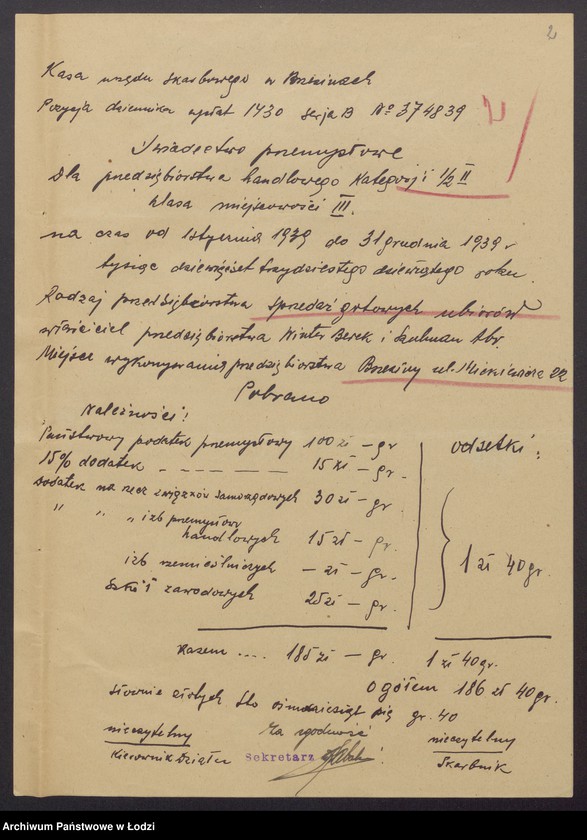 2
Kasa urzędu skarbowego w Brzezinach
Pozycja dziennika wpłat 1430 serja B No 374839
Świadectwo przemysłowe
Dla przedsiębiorstwa handlowego Kategorji 1/2 II
klasa miejscowości III.
na czas od 1 stycznia 1939 do 31 grudnia 1939 r
tysiąc dziewięćset trzydziestego dziewiątego roku.
Rodzaj przedsiębiorstwa sprzedaż gotowych ubiorów
właściciel przedsiębiorstwa Winter Berek i Szulman Abr.
Miejsce wykonywania przedsiębiorstwa Brzeziny ul. Mickiewicza 22
Pobrano
Należności:
Państwowy podatek przemysłowy 100 zł — gr
odsetki:
15% dodatek 15 zł — gr.
dodatek na rzecz związków samorządowych 30 zł — gr.
" " " izb przemysłowy
handlowych 15 zł — gr.
izb rzemieślniczych — zł — gr.
1 zł 40 gr.
Szkół zawodowych 25 zł — gr.
Razem .... 185 zł — gr. 1 zł 40 gr.
Ogółem 186 zł 40 gr.
słownie złotych Sto osiemdziesiąt gr. 40
nieczytelny Za zgodność nieczytelny
Kierownik Działu Sekretarz Skarbnik
Archiwum Państwowe w Łodzi